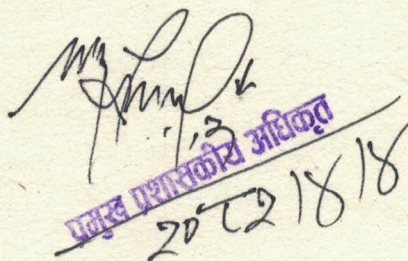 प्रमुख प्रशासकीय अधिकृत
२०८२।४।४